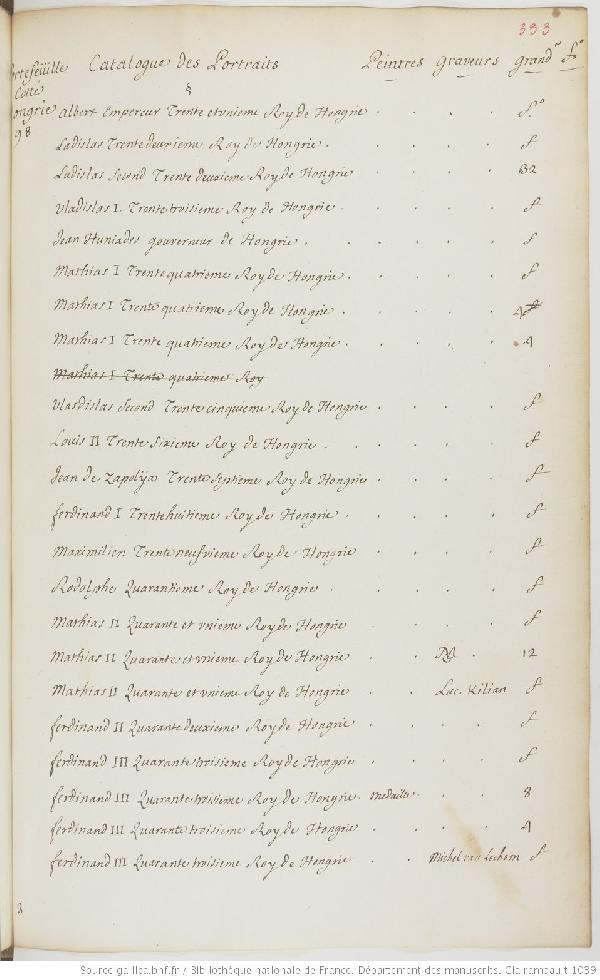 333
Portefeüille Catalogue des Portraits Peintres Graveurs Grandr fo
Cotté §
Hongrie Albert Empereur Trente et vnieme Roy de Hongrie . . . . fo
98
Ladislas Trentedeuxieme Roy de Hongrie . . . . f
Ladislas Second Trente deuxieme Roy de Hongrie . . . . 32
Vladislas I. Trentetroisieme Roy de Hongrie . . . . f
Jean Huniades gouverneur de Hongrie . . . . f
Mathias I Trente quatrieme Roy de Hongrie . . . . f
Mathias I Trente quatrieme Roy de Hongrie . . . . 4 f
Mathias I Trente quatrieme Roy de Hongrie . . . . 4
Mathias I Trente quatrieme Roy
Vlasdislas Second Trente cinquieme Roy de Hongrie . . . . f
Louis II Trente Sixieme Roy de Hongrie . . . . f
Jean de Zapolÿa Trente Septieme Roy de Hongrie . . . . f
ferdinand I Trentehuitieme Roy de Hongrie . . . . f
Maximilien Trente neufvieme Roy de Hongrie . . . . f
Rodolphe Quarantieme Roy de Hongrie . . . . f
Mathias II Quarante et vnieme Roy de Hongrie . . . . f
Mathias II Quarante et vnieme Roy de Hongrie . . . 12
Mathias II Quarante et vnieme Roy de Hongrie . . Luc. Kilian f
ferdinand II Quarante deuxieme Roy de Hongrie . . . . f
ferdinand III Quarante troisieme Roy de Hongrie . . . . f
ferdinand III Quarante troisieme Roy de Hongrie . medaille . . . 8
ferdinand III Quarante troisieme Roy de Hongrie . . . . 4
ferdinand III Quarante troisieme Roy de Hongrie . . Michel van Lochem f
Source gallica.bnf.fr / Bibliothèque nationale de France. Département des manuscrits. Clairambault 1039